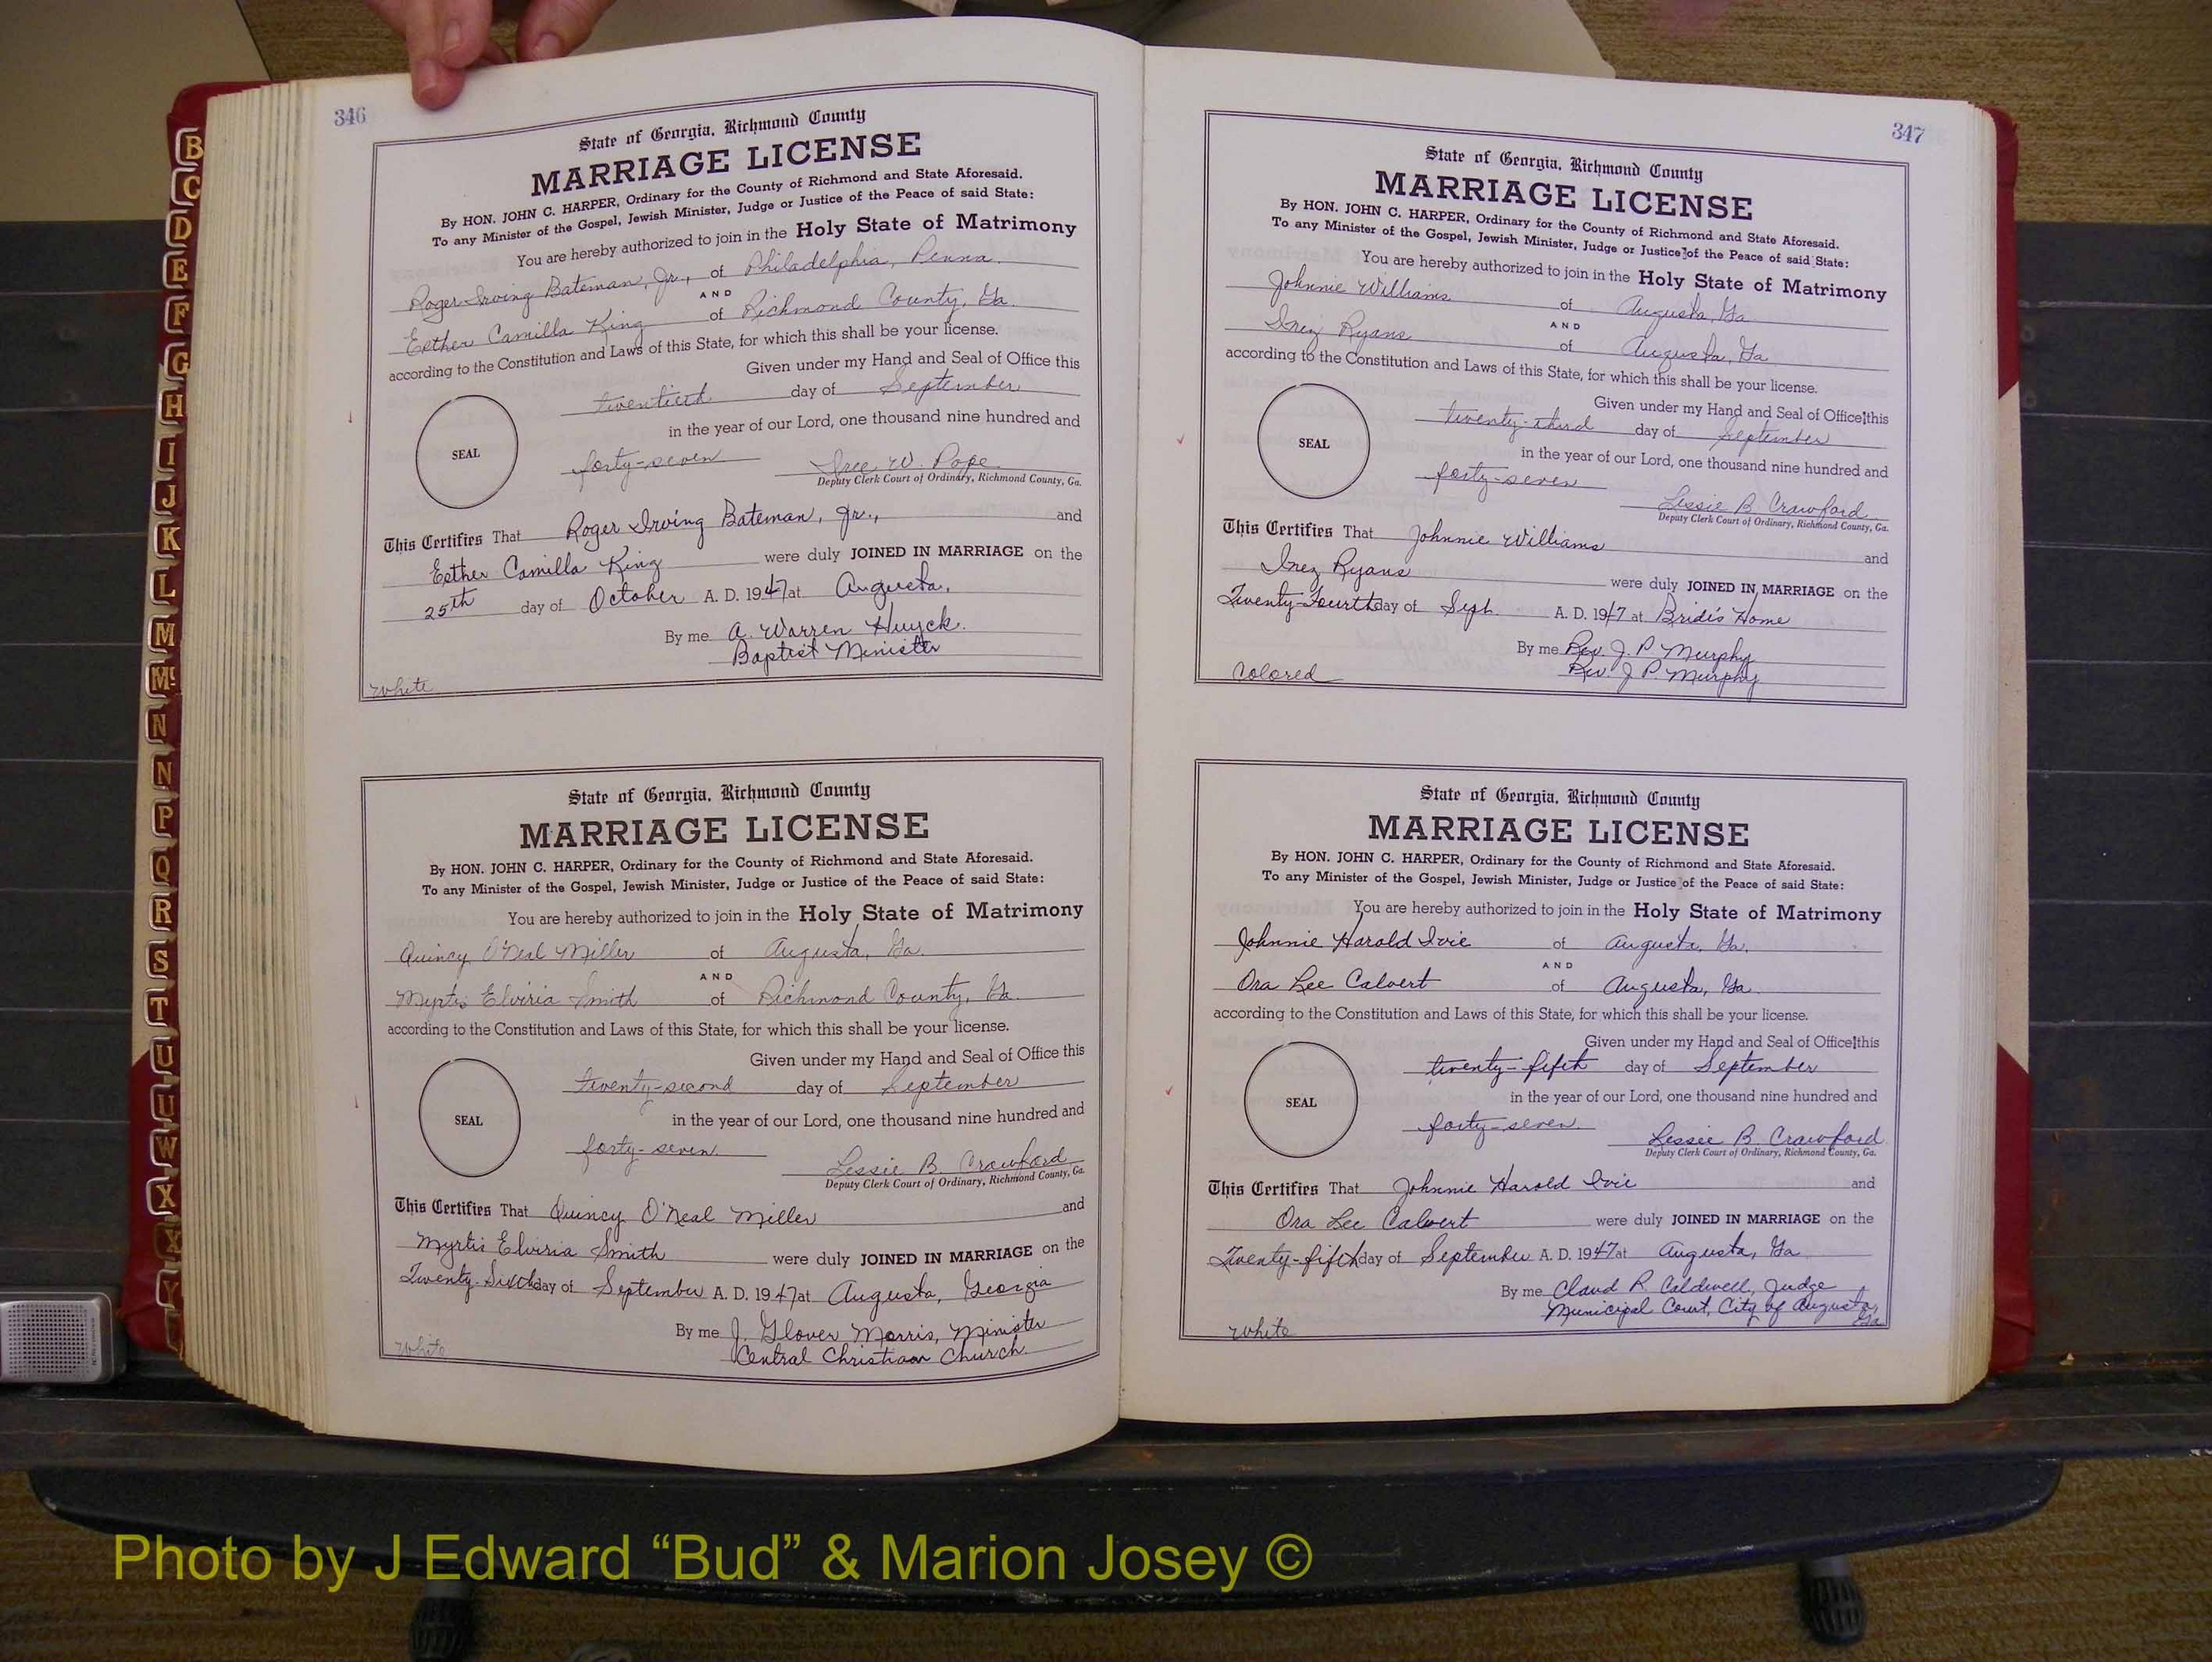 346
State of Georgia, Richmond County
MARRIAGE LICENSE
By HON. JOHN C. HARPER, Ordinary for the County of Richmond and State Aforesaid.
To any Minister of the Gospel, Jewish Minister, Judge or Justice of the Peace of said State:
You are hereby authorized to join in the Holy State of Matrimony
Roger Irving Bateman, Jr., of Philadelphia, Penna.
AND
Esther Camilla King of Richmond County, Ga.
according to the Constitution and Laws of this State, for which this shall be your license.
Given under my Hand and Seal of Office this
twentieth day of September
in the year of our Lord, one thousand nine hundred and
SEAL
forty-seven W. Pope
Deputy Clerk Court of Ordinary, Richmond County, Ga.
This Certifies That Roger Irving Bateman, Jr., and
Esther Camilla King were duly JOINED IN MARRIAGE on the
25th day of October A. D. 1947 at Augusta.
By me A. Warren Huyck.
Baptist Minister
White
State of Georgia, Richmond County
MARRIAGE LICENSE
By HON. JOHN C. HARPER, Ordinary for the County of Richmond and State Aforesaid.
To any Minister of the Gospel, Jewish Minister, Judge or Justice of the Peace of said State:
You are hereby authorized to join in the Holy State of Matrimony
Quincy O'Neal Miller of Augusta, Ga.
AND
Myrtis Elviria Smith of Richmond County, Ga.
according to the Constitution and Laws of this State, for which this shall be your license.
Given under my Hand and Seal of Office this
twenty-second day of September
in the year of our Lord, one thousand nine hundred and
SEAL
forty-seven Lessie B. Crawford
Deputy Clerk Court of Ordinary, Richmond County, Ga.
This Certifies That Quincy O'Neal Miller and
Myrtis Elviria Smith were duly JOINED IN MARRIAGE on the
Twenty-Sixth day of September A. D. 1947 at Augusta, Georgia
By me J. Glover Morris, Minister
Central Christian Church
White
347
State of Georgia, Richmond County
MARRIAGE LICENSE
By HON. JOHN C. HARPER, Ordinary for the County of Richmond and State Aforesaid.
To any Minister of the Gospel, Jewish Minister, Judge or Justice of the Peace of said State:
You are hereby authorized to join in the Holy State of Matrimony
Johnnie Williams of Augusta, Ga
AND
Inez Ryans of Augusta, Ga
according to the Constitution and Laws of this State, for which this shall be your license.
Given under my Hand and Seal of Office this
twenty-third day of September
in the year of our Lord, one thousand nine hundred and
SEAL
forty-seven
Lessie B. Crawford
Deputy Clerk Court of Ordinary, Richmond County, Ga.
This Certifies That Johnnie Williams and
Inez Ryans were duly JOINED IN MARRIAGE on the
Twenty-Fourth day of Sept. A. D. 1947 at Bride's Home
By me Rev. J. P. Murphy
Rev. J P. Murphy
Colored
State of Georgia, Richmond County
MARRIAGE LICENSE
By HON. JOHN C. HARPER, Ordinary for the County of Richmond and State Aforesaid.
To any Minister of the Gospel, Jewish Minister, Judge or Justice of the Peace of said State:
You are hereby authorized to join in the Holy State of Matrimony
Johnnie Harold Ivie of Augusta, Ga.
AND
Ora Lee Calvert of Augusta, Ga.
according to the Constitution and Laws of this State, for which this shall be your license.
Given under my Hand and Seal of Office this
twenty-fifth day of September
in the year of our Lord, one thousand nine hundred and
SEAL
forty-seven. Lessie B. Crawford
Deputy Clerk Court of Ordinary, Richmond County, Ga.
This Certifies That Johnnie Harold Ivie and
Ora Lee Calvert were duly JOINED IN MARRIAGE on the
Twenty-fifth day of September A. D. 1947 at Augusta, Ga
By me Claud R. Caldwell, Judge
Municipal Court, City of Augusta,
Ga
White
B
C
D
E
F
G
H
I
J
K
L
M
Mc
N
N
P
Q
R
S
T
U
U
W
X
X
Y
Photo by J Edward “Bud” & Marion Josey ©